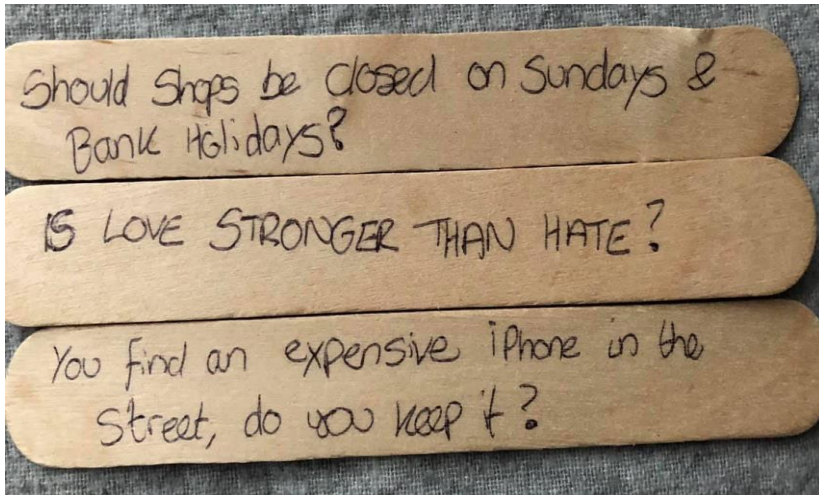 Should Shops be closed on Sundays &
Bank Holidays?
IS LOVE STRONGER THAN HATE?
You find an expensive iPhone in the
Street, do you keep it?